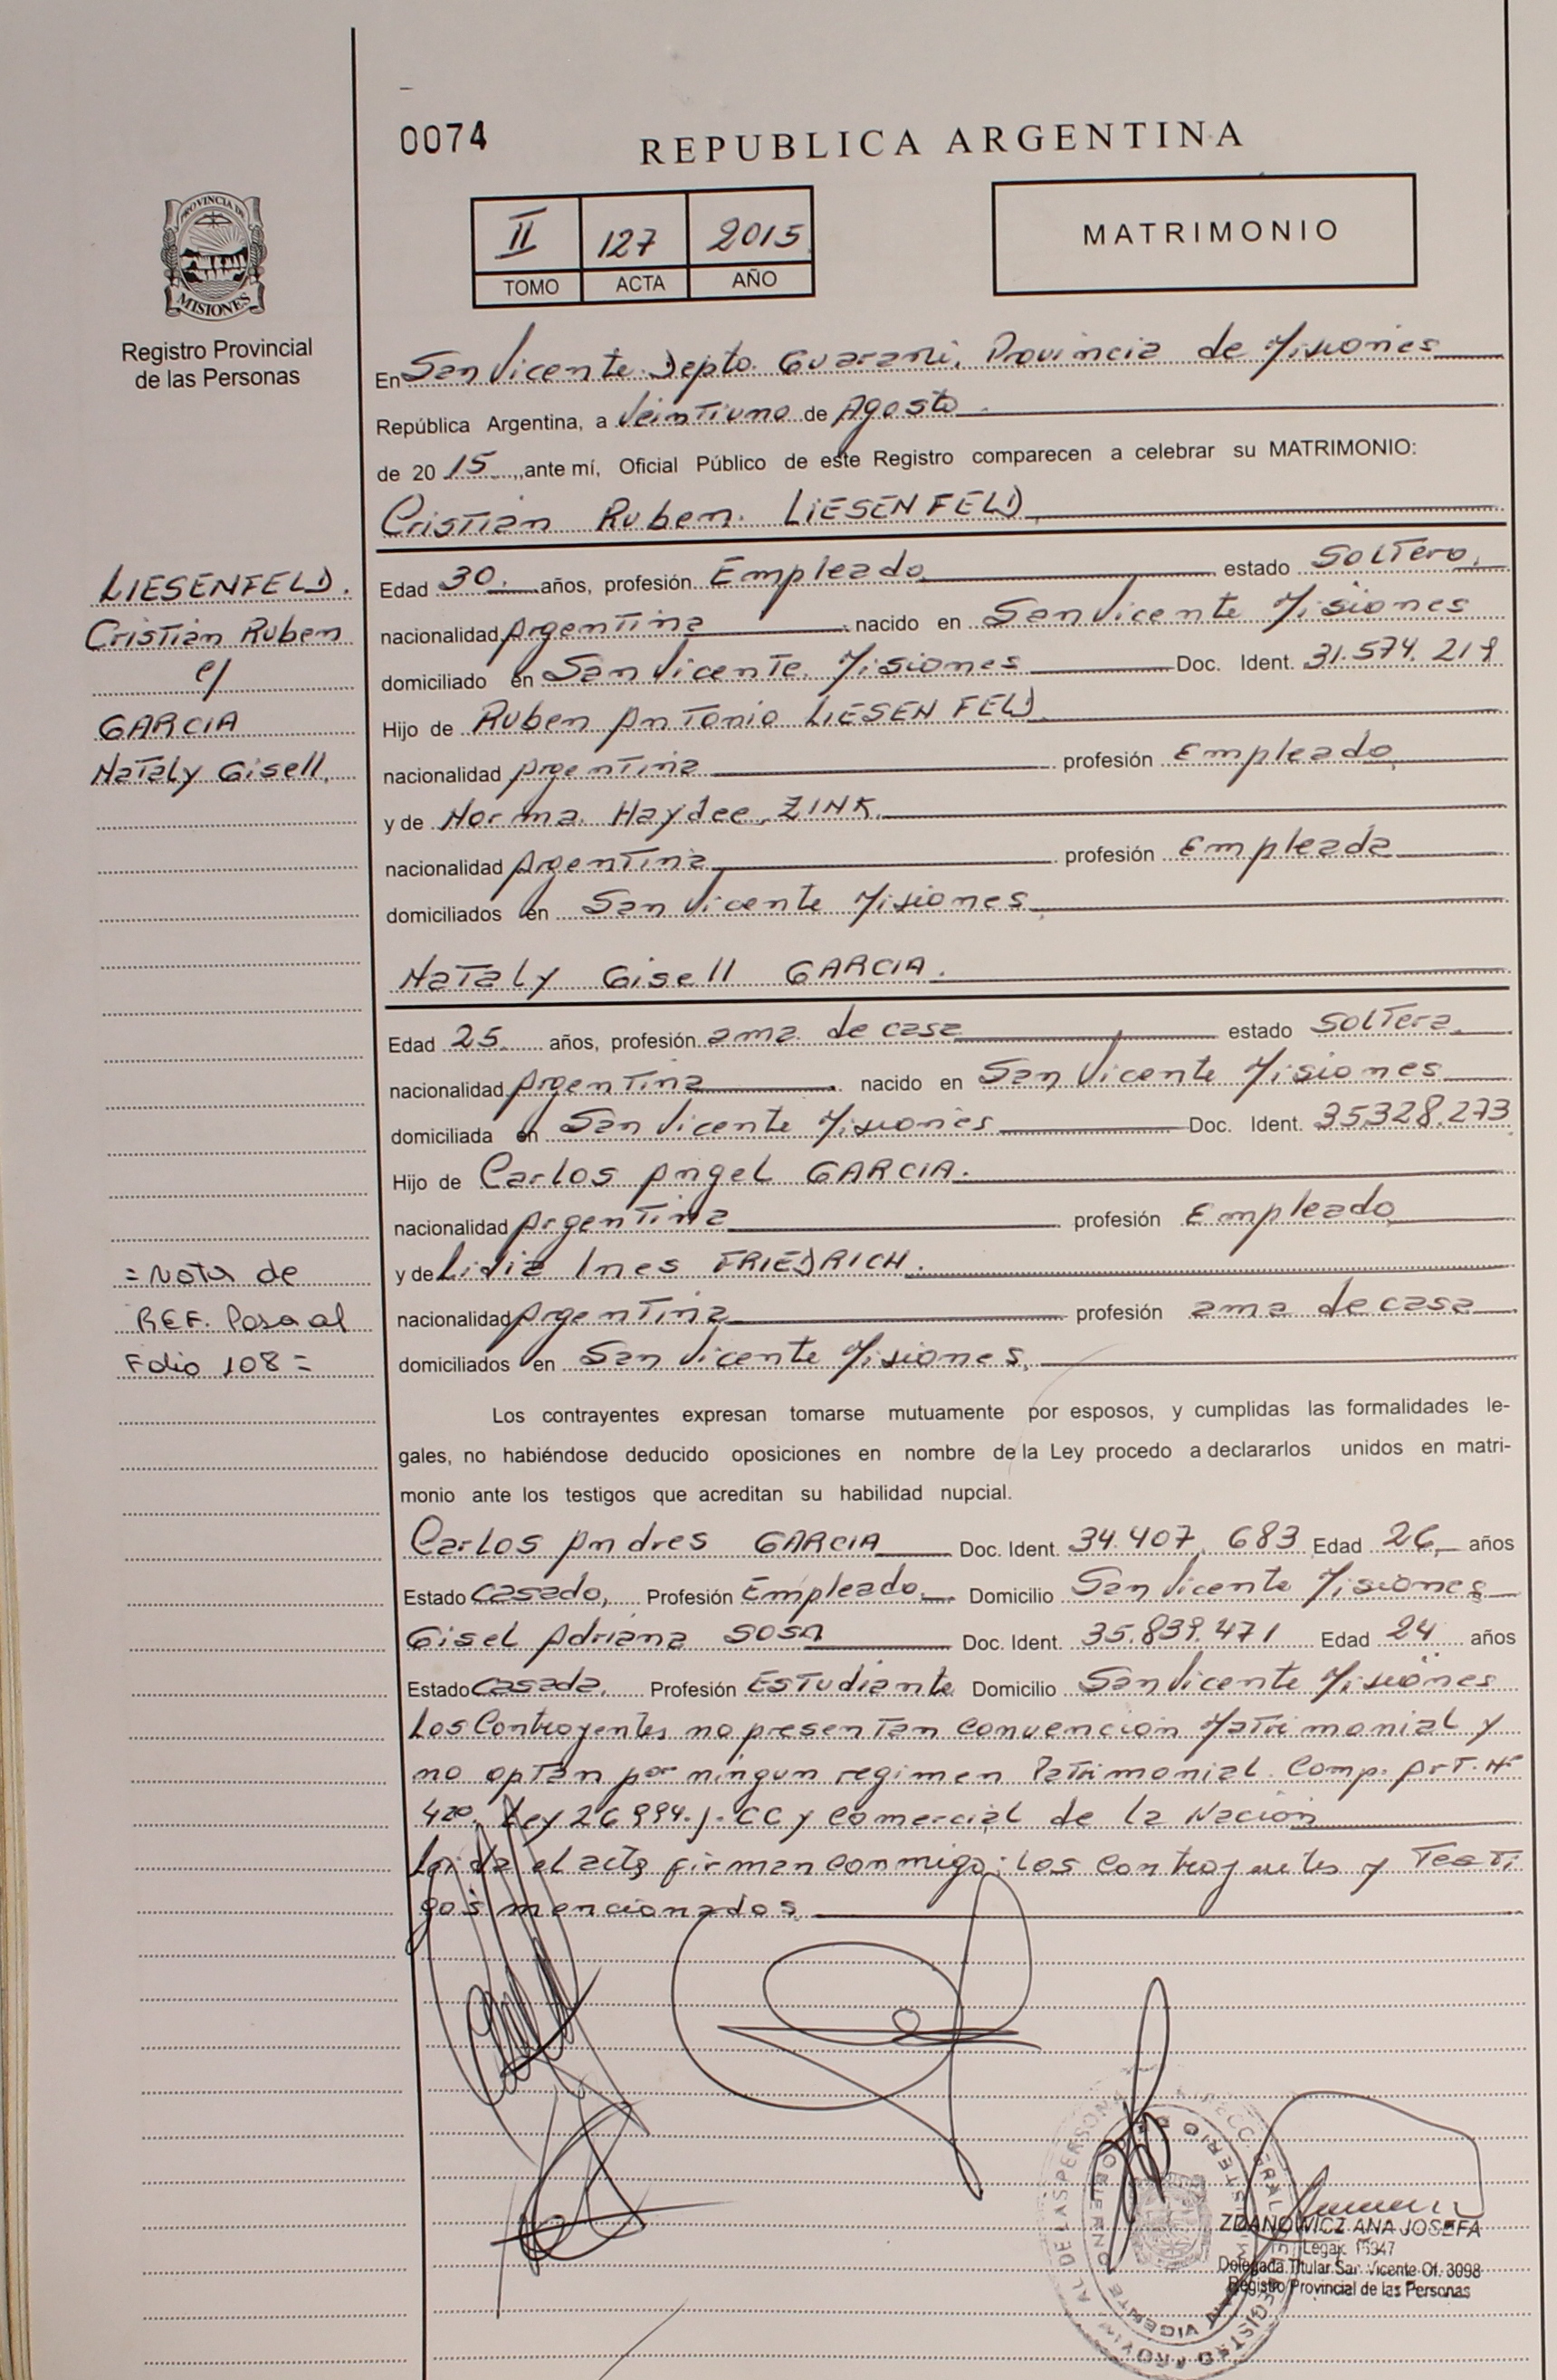 0074
REPUBLICA ARGENTINA
II 127 2015
TOMO ACTA AÑO
MATRIMONIO
PROVINCIA DE
MISIONES
Registro Provincial
de las Personas
En San Vicente Depto. Guarani, Provincia de Misiones
República Argentina, a Veintiuno de Agosto
de 20 15, ante mí, Oficial Público de este Registro comparecen a celebrar su MATRIMONIO:
Cristian Ruben LIESENFELD
LIESENFELD.
Cristian Ruben
c/
GARCIA
Nataly Gisell.
Edad 30. años, profesión Empleado estado Soltero.
nacionalidad Argentina nacido en San Vicente Misiones
domiciliado en San Vicente. Misiones Doc. Ident. 31.574.
Hijo de Ruben Antonio LIESENFELD
nacionalidad Argentina profesión Empleado.
y de Norma Haydee ZINK.
nacionalidad Argentina profesión Empleada
domiciliados en San Vicente Misiones
Nataly Gisell GARCIA.
Edad 25. años, profesión ama de casa estado Soltera.
nacionalidad Argentina nacido en San Vicente Misiones
domiciliada en San Vicente Misiones Doc. Ident. 35328.273
Hijo de Carlos Angel GARCIA.
nacionalidad Argentina profesión Empleado
y de Lidia Ines FRIEDRICH.
nacionalidad Argentina profesión ama de casa
domiciliados en San Vicente Misiones.
= Nota de
REF. Pasa al
Folio 108 =
Los contrayentes expresan tomarse mutuamente por esposos, y cumplidas las formalidades le-
gales, no habiéndose deducido oposiciones en nombre de la Ley procedo a declararlos unidos en matri-
monio ante los testigos que acreditan su habilidad nupcial.
Carlos Andres GARCIA Doc. Ident. 34.407.683 Edad 26 años
Estado Casado, Profesión Empleado. Domicilio San Vicente Misiones
Gisel Adriana SOSA Doc. Ident. 35.839.471 Edad 24 años
Estado Casada. Profesión Estudiante Domicilio San Vicente Misiones
Los Contrayentes no presentan Convencion Matrimonial y
no optan por ningun regimen Patrimonial. Comp. Art. Nº
420. Ley 26994.- CC y Comercial de la Nación
Leida el acta firman conmigo: los Contrayentes y Testi
gos mencionados
ZDANOWICZ ANA JOSEFA
Legaj. 15347
Delegada Titular San Vicente Of. 3098
Registro Provincial de las Personas